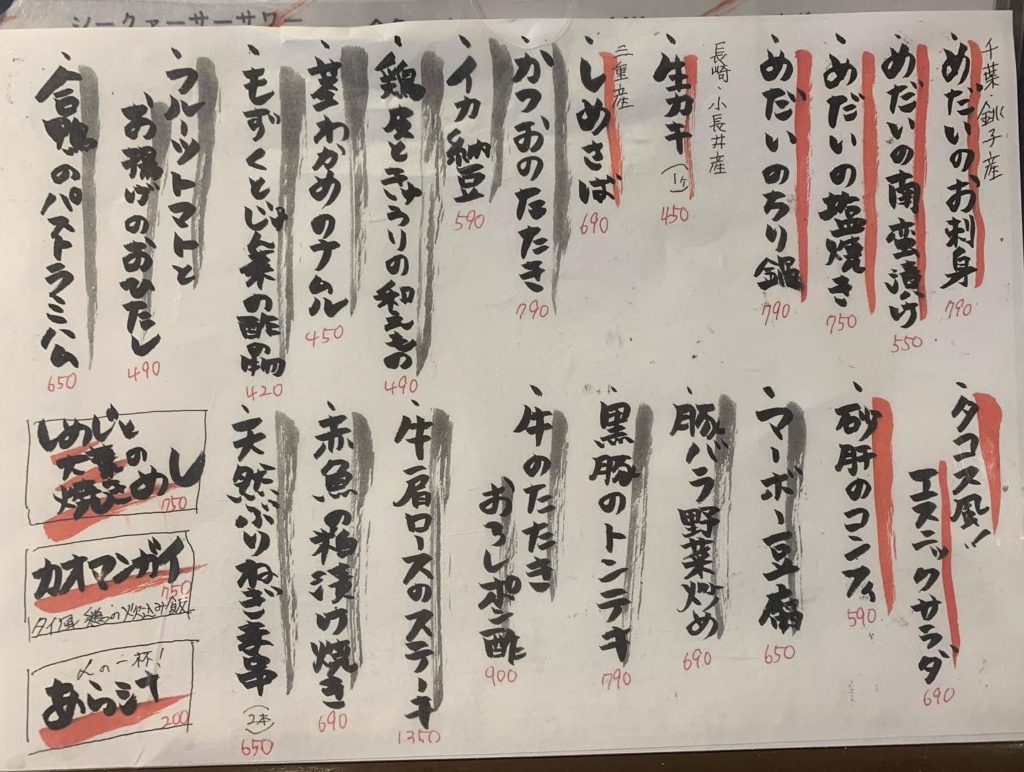 シークァーサーサワー
千葉 銚子産
、めだいのお刺身 790
、めだいの南蛮漬け 550
、めだいの塩焼き 750
、めだいのちり鍋 790
長崎・小長井産
、生カキ (1ケ) 450
三重産
、しめさば 690
、かつおのたたき 790
、イカ納豆 590
、鶏皮ときゅうりの和えもの 490
、茎わかめのナムル 450
、もずくとじゅん菜の酢の物 420
、フルーツトマトと
お揚げのおひたし 490
、合鴨のパストラミハム 650
、タコス風!
エスニックサラダ 690
、砂肝のコンフィ 590
、マーボー豆腐 650
、豚バラ野菜炒め 690
、黒豚のトンテキ 790
、牛のたたき
おろしポン酢 900
、牛肩ロースのステーキ 1350
、赤魚の粕漬け焼き 690
、天然ぶりねぎま串 (2本) 650
しめじと
大葉の
焼きめし 750
カオマンガイ 750
タイ風 鶏の炊込み飯
〆の一杯!
あら汁 200